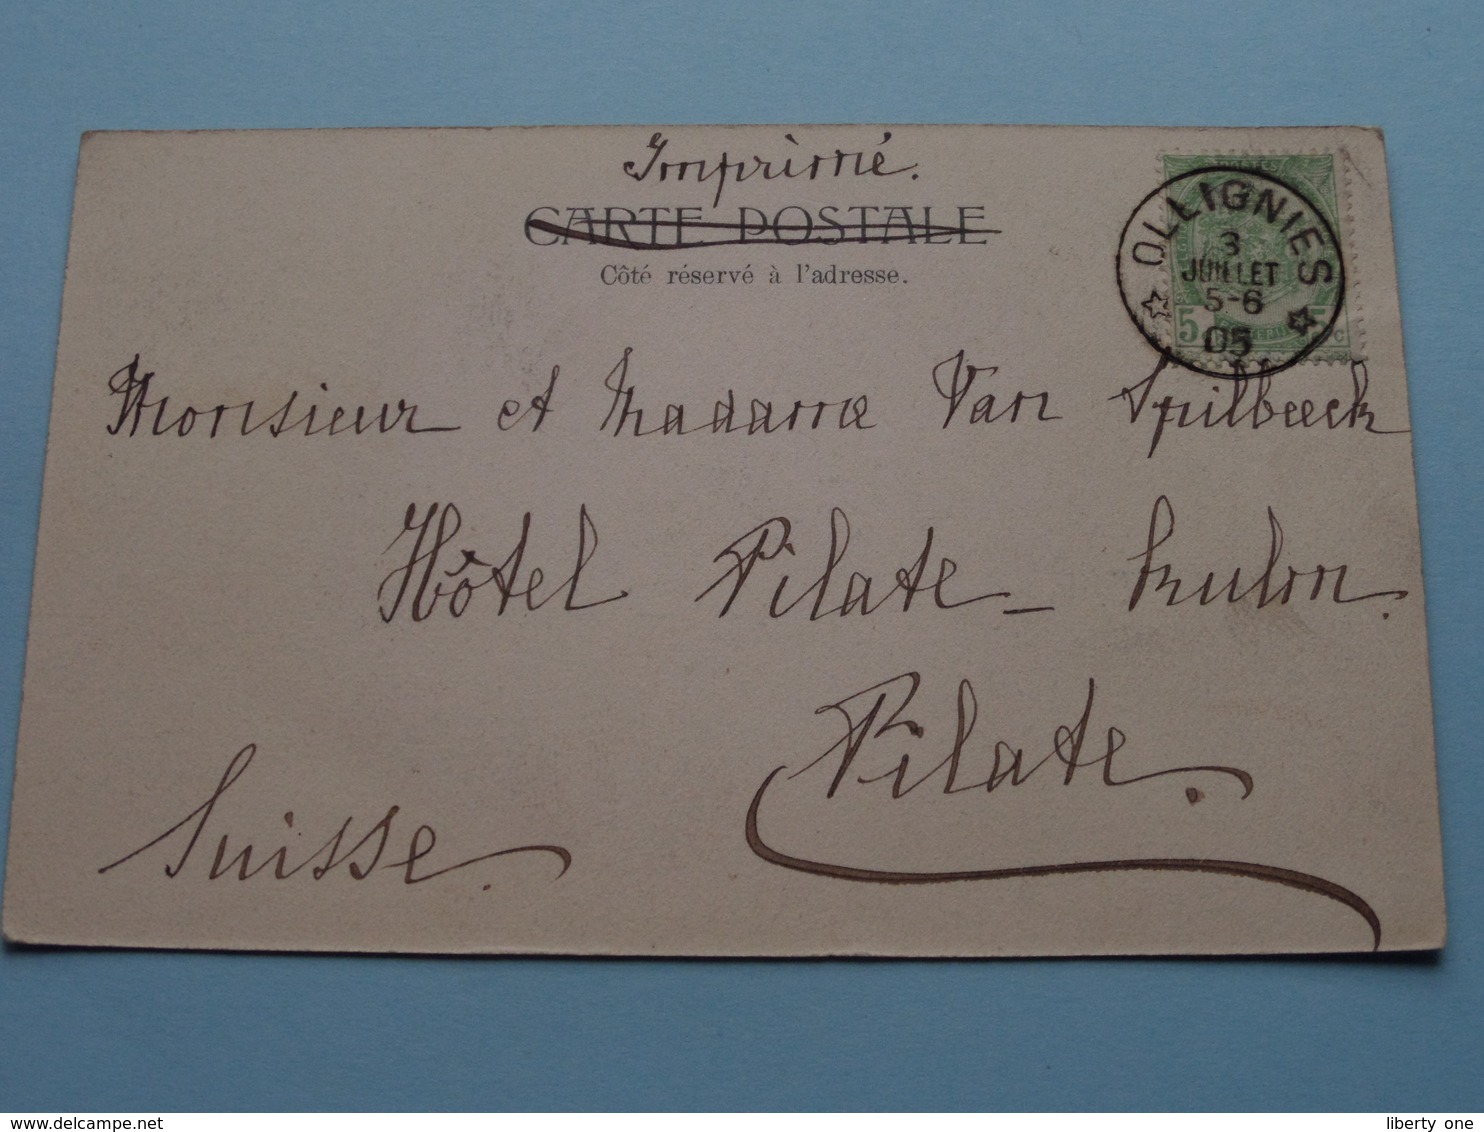 Imprimé.
CARTE POSTALE
Côté réservé à l'adresse.
OLLIGNIES
3
JUILLET
5-6
05
5
Monsieur et Madame Van Spilbeeck
Hôtel Pilate - Kulm.
Pilate.
Suisse.
© delcampe.net
liberty_one